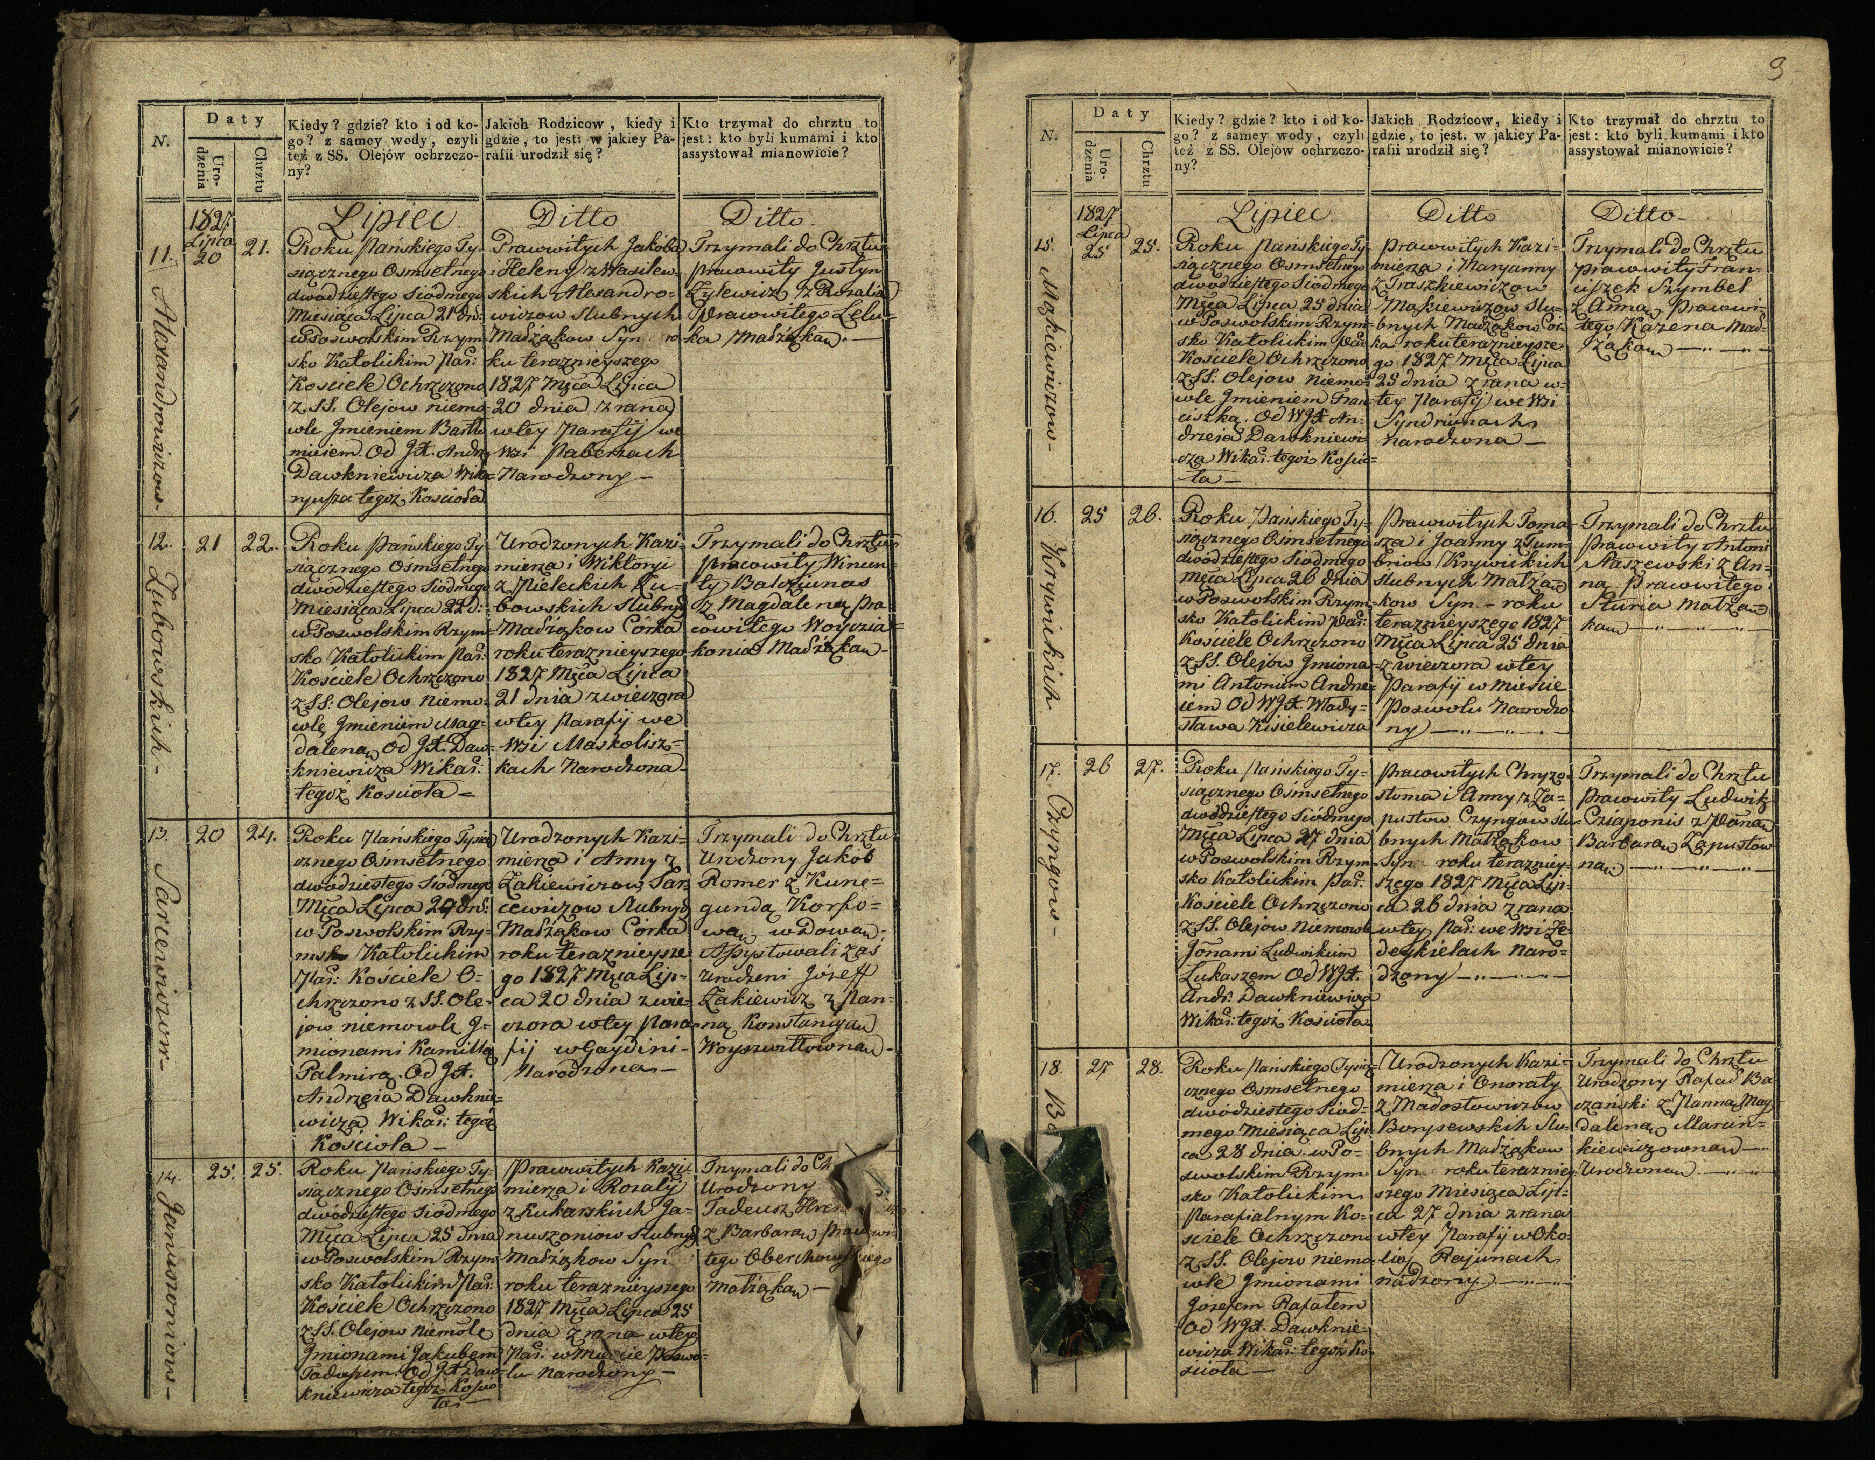 N.
Daty
Urodzenia
Chrztu
Kiedy? gdzie? kto i od ko-
go? z samey wody, czyli
też z SS. Olejów ochrzczo-
ny?
Jakich Rodzicow, kiedy i
gdzie, to jest: w jakiey Pa-
rafii urodził się?
Kto trzymał do chrztu to
jest: kto byli kumami i kto
assystował mianowicie?
1827
Lipca
Lipiec
Ditto
Ditto
11.
20
21.
Alexandrowiczow
Roku Pańskiego Ty-
siącznego Osmsetnego
dwódziestego Siodmego
Miesiąca Lipca 21 dn:
w Poswolskim Rzym-
sko Katolickim Par:
Kościele Ochrzczono
z SS. Olejow niemo-
wle Jmieniem Bartło
mieiem. Od JX. Andrz
Dawkniewicza Wika-
ryusza tegoż Kościoła
Pracowitych Jakóba
i Heleny z Wasilew-
skich Alexandro-
wiczow Slubnych
Małżąkow Syn ro
ku teraznieyszego
1827 Mſca Lipca
20 dnia z rana
w tey Parafij we
Wsi Paberzach
Narodzony —
Trzymali do Chrztu
pracowity Justyn
Zylewicz z Rozalią
Pracowitego Lelu-
ka Małżąkąu. —
12.
21
22.
Zubowskich -
Roku Pańskiego Ty-
siącznego Osmsetnego
dwódziestego Siodmego
Miesiąca Lipca 22 d:
w Poswolskim Rzym-
sko Katolickim Par:
Kościele Ochrzczono
z SS: Olejow niemo-
wlę Jmieniem Mag-
daleną Od JX. Daw-
kniewicza Wikar:
tegoż Kościoła —
Urodzonych Kazi-
mierza i Wiktoryi
z Pieleckich Zu-
bowskich Slubnych
Małżąkow Córka
roku teraznieyszego
1827 Mſca Lipca
21 dnia z wieczora
w tey Parafij we
Wsi Maskolisz-
kach Narodzona -
Trzymali do Chrztu
pracowity Wincen-
ty Balziunas
z Magdaleną pra-
cowitego Woyczia-
konia Małżąkąu -
13.
20
24.
Sarcewiczow -
Roku Pańskiego Tysią
cznego Osmsetnego
dwódziestego Siodmego
Mſca Lipca 24 dn:
w Poswolskim Rzy-
msko Katolickim
Par: Kościele O-
chrzczono z SS. Ole-
jow niemowlę J-
mionami Kamillą
Palmirą. Od JX.
Andrzeia Dawknie-
wicza Wikar: tegoż
Kościoła —
Urodzonych Kazi-
mierza i Anny z
Zakiewiczow Sar-
cewiczow Slubnych
Małżąkow Córka
roku teraznieysze
go 1827 Mſca Lip-
ca 20 dnia z wie-
czora w tey Para-
fij w Gaydini-
Narodzona —
Trzymali do Chrztu
Urodzony Jakób
Romer z Kune-
gundą Korfo-
wą wDową;
Assystowali zaś
Urodzeni Józeff
Zakiewicz z Pan-
ną Konstancyą
Woyszwiłłowną -
14.
25.
25.
Januszoniow -
Roku Pańskiego Ty-
siącznego Osmsetnego
dwódziestego Siodmego
Mſca Lipca 25 dnia
w Poswolskim Rzym
sko Katolickim Par:
Kościele Ochrzczono
z SS. Olejow niemowlę
Jmionami Jakubem
Tadeuszem Od JX Daw-
kniewicza tegoż Kościo
ła —
Pracowitych Kazi-
mierza i Rozalij
z Kukarskich Ja-
nuszoniow Slubnych
Małżąkow Syn
roku teraznieyszego
1827 Mſca Lipca 25
dnia z rana w tey
Par: w Mieście Poswo-
lu Narodzony —
Trzymali do Ch
Urodzony
Tadeusz
z Barbarą Pracowi
tego Oberchowskiego
Małżąkąu —
9
N.
Daty
Urodzenia
Chrztu
Kiedy? gdzie? kto i od ko-
go? z samey wody, czyli
też z SS. Olejów ochrzczo-
ny?
Jakich Rodzicow, kiedy i
gdzie, to jest: w jakiey Pa-
rafii urodził się?
Kto trzymał do chrztu to
jest: kto byli kumami i kto
assystował mianowicie?
1827
Lipca
Lipiec.
Ditto
Ditto -
15.
25
25.
Mackiewiczow -
Roku Pańskiego Ty-
siącznego Osmsetnego
dwódziestego Siodmego
Mſca Lipca 25 dnia
w Poswolskim Rzym-
sko Katolickim Par:
Kościele Ochrzczono
z SS. Olejow niemo-
wle Jmieniem Fran-
ciszką. Od WJX An-
drzeia Dawkniewi
cza Wikar: tegoż Kościo-
ła —
Pracowitych Kazi-
mierza i Maryanny
z Traszkiewiczow
Mackiewiczow Slu-
bnych Małżąkow Cór
ka roku teraznieysze
go 1827 Mſca Lipca
25 dnia z rana w-
tey Parafij we Wsi
Syndriunach
Narodzona —
Trzymali do Chrztu
pracowity Fran-
ciszek Szymbel
z Anną Pracowi-
tego Kazena Mał-
żąkąu —
16.
25
26.
Krzywickich -
Roku Pańskiego Ty-
siącznego Osmsetnego
dwódziestego Siodmego
Mſca Lipca 26 dnia
w Poswolskim Rzym-
sko Katolickim Par:
Kościele Ochrzczono
z SS. Olejow Jmiona-
mi Antonim Andrze-
iem Od WJX Włady-
sława Kisielewicza
Pracowitych Toma-
sza i Joanny z Dum-
briow Krzywickich
slubnych Małżą-
kow Syn - roku
teraznieyszego 1827
Mſca Lipca 25 dnia
z wieczora w tey
Parafij w Mieście
Poswolu Narodzo
ny —
Trzymali do Chrztu
Pracowity Antoni
Staszewski z An-
ną Pracowitego
Sturia Małżą-
kąu —
17.
26
27.
Czyngow -
Roku Pańskiego Ty-
siącznego Osmsetnego
dwódziestego Siódmego
Mſca Lipca 27 dnia
w Poswolskim Rzym-
sko Katolickim Par:
Kościele Ochrzczono
z SS. Olejow Niemowlę
Jmionami Ludwikiem
Łukaszem Od WJX.
Andr: Dawkniewicza
Wikar: tegoż Kościoła
Pracowitych Chryzo-
stoma i Anny z Za-
pustow Czyngow Slu-
bnych Małżąkow
Syn roku terazniey-
szego 1827 Mſca Lip-
ca 26 dnia z rana
w tey Par: we Wsi Ze-
deykielach Naro-
dzony —
Trzymali do Chrztu
Pracowity Ludwik
Czaponis z Panną
Barbarą Zapustow
ną —
18.
27
28.
Bo
Roku Pańskiego Tysią-
cznego Osmsetnego
dwódziestego Siod-
mego Miesiąca Lip-
ca 28 dnia w Po-
swolskim Rzym-
sko Katolickim
Parafialnym Ko-
ściele Ochrzczono
z SS. Olejow niemo-
wlę Jmionami
Józefem Rafałem
Od WJX. Dawknie-
wicza Wikar: tegoż Ko-
ścioła —
Urodzonych Kazi-
mierza i Onoraty
z Madostowiczow
Borysewskich Slu-
bnych Małżąkow
Syn roku teraznieý
szego Miesiąca Lip-
ca 27 dnia z rana
w tey Parafij w Oko-
licy Rajunach
nadzony —
Trzymali do Chrztu
Urodzony Rafał Ba
czański z Panną Mag
daleną Maran-
kiewiczowną —
Urodzoną. —